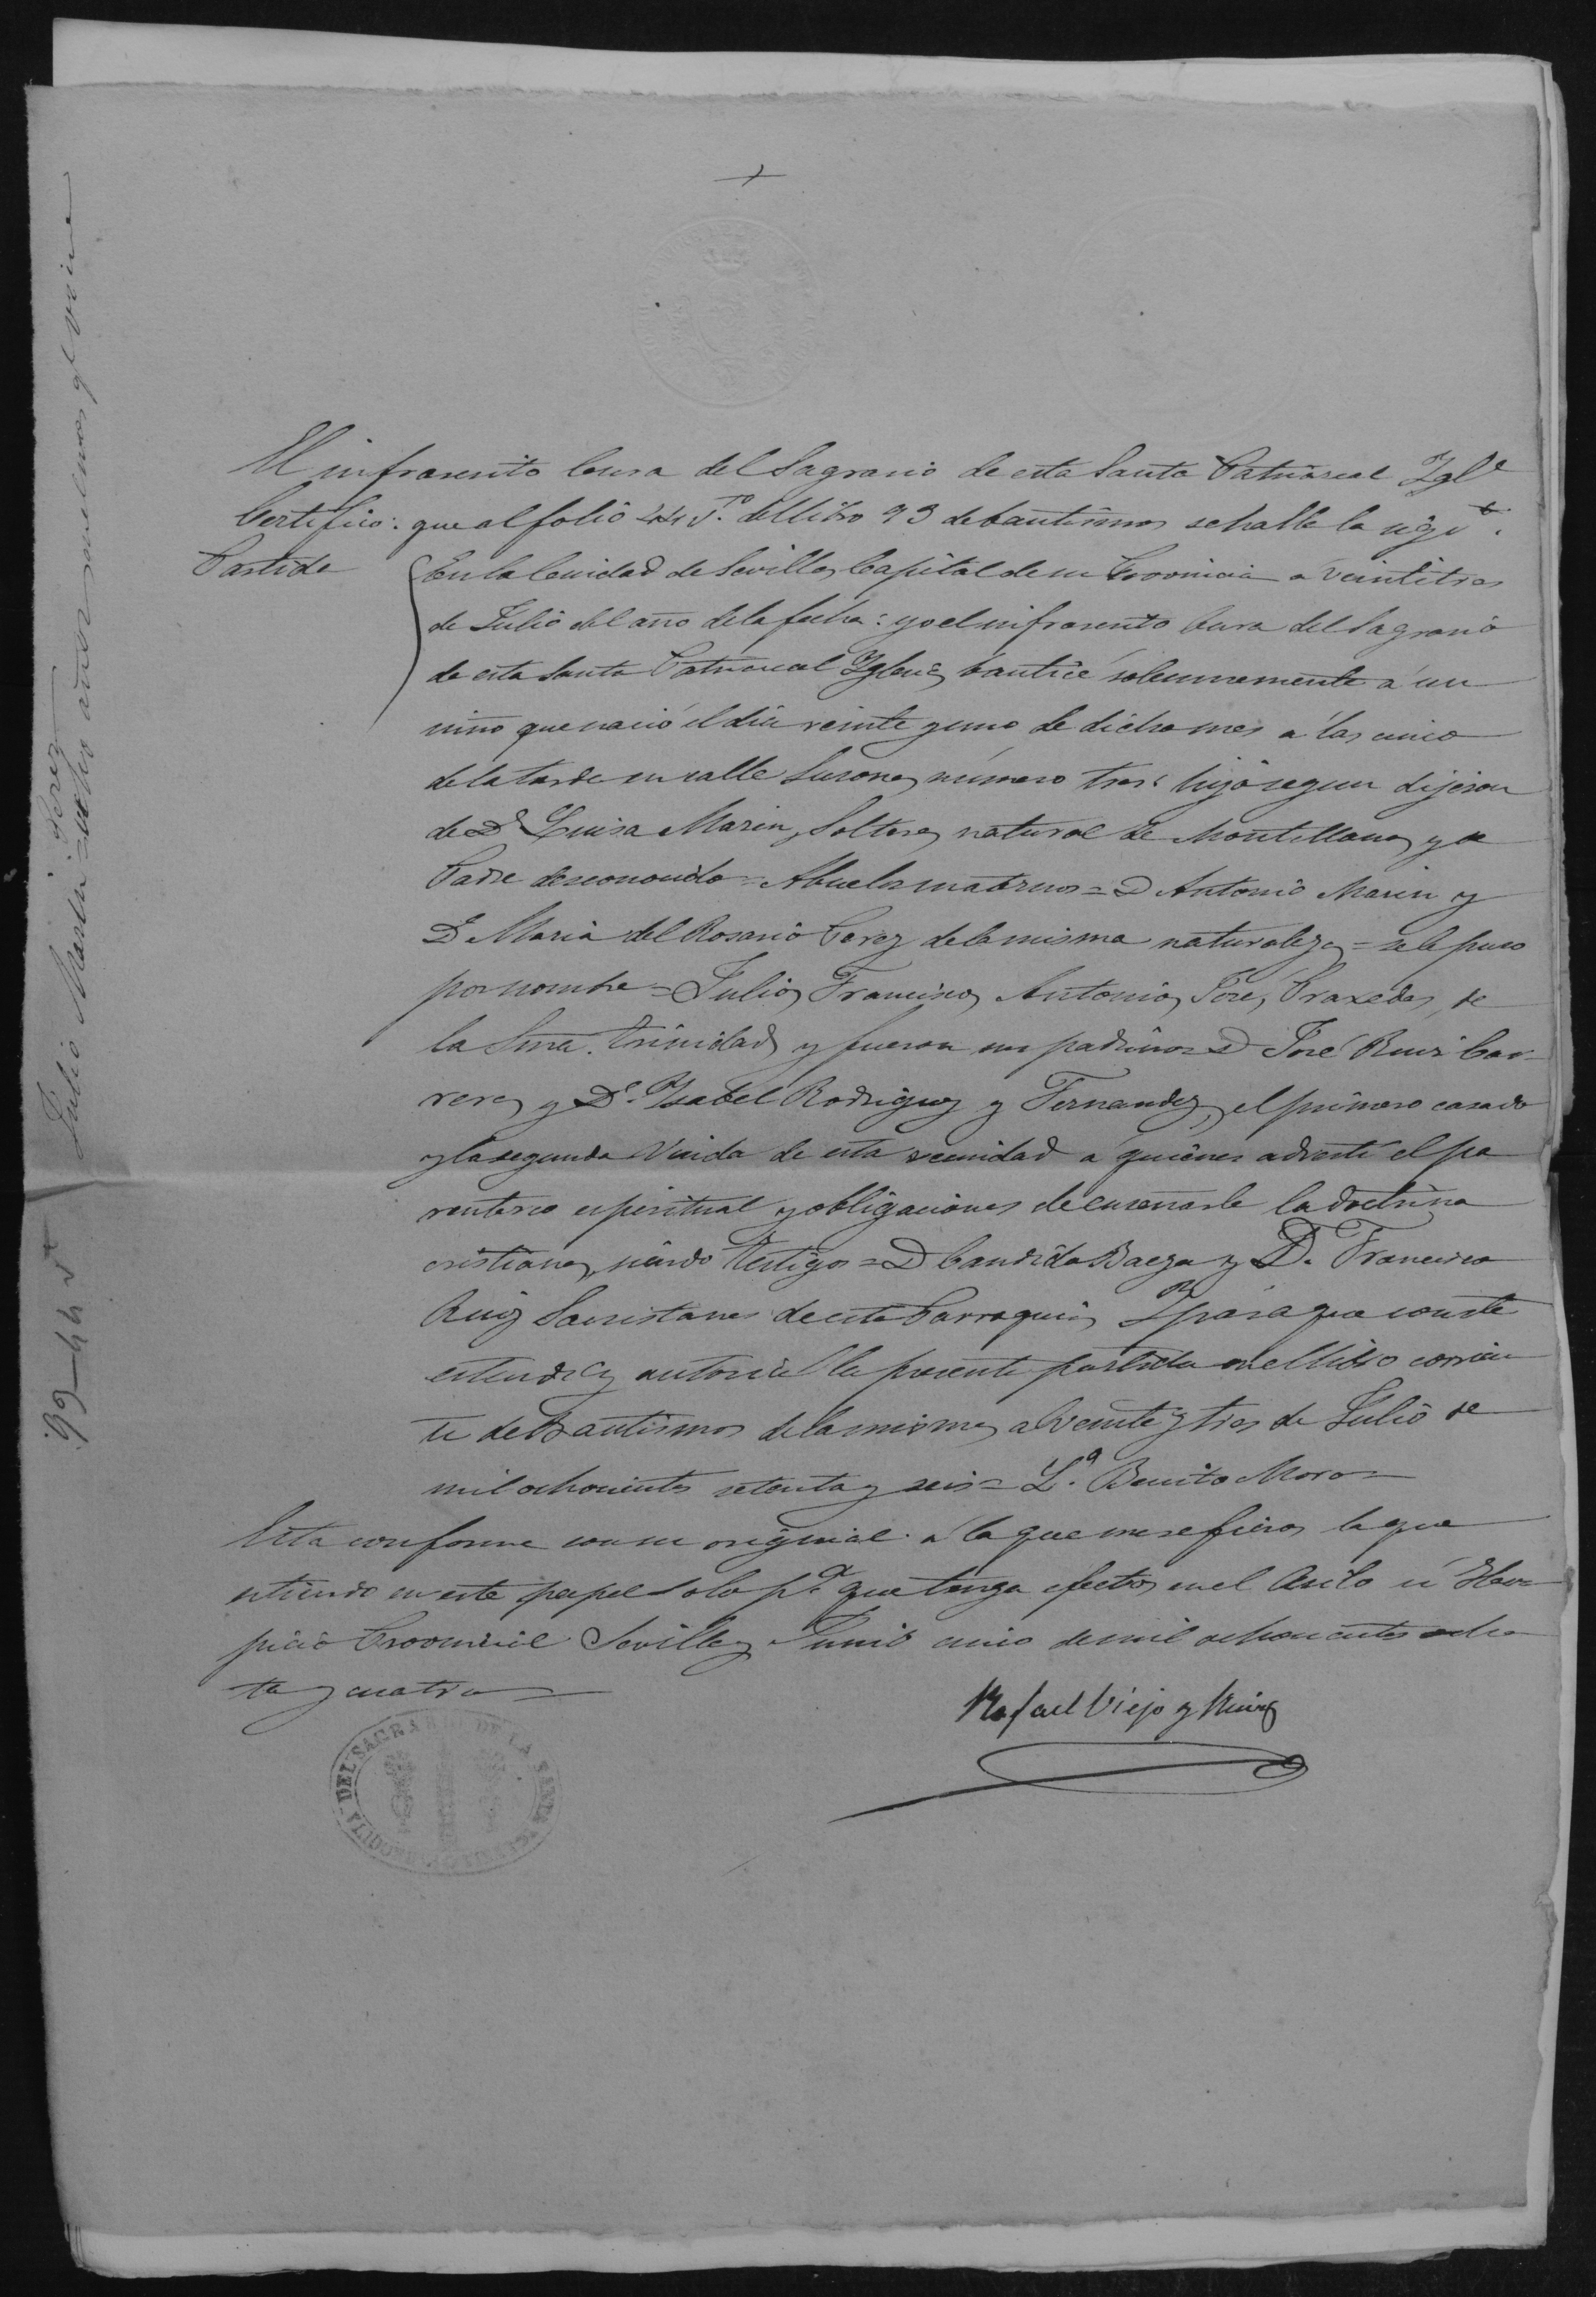 El infrascrito Cura del Sagrario de esta Santa Patriarcal Igl.ª
Certifico: que al folio 44 v.to del libro 99 de bautismos se halla la sigte.
Partida
En la Ciudad de Sevilla, Capital de su Provincia a veintitres
de Julio del año de la fecha: yo el infrascrito Cura del Sagrario
de esta Santa Patriarcal Iglesia, bauticé solemnemente á un
niño que nació el dia veinte y uno de dicho mes a las cinco
de la tarde en calle Susona, número tres: hijo segun dijeron
de D.ª Luisa Marin, Soltera, natural de Montellano, y de
Padre desconocido = Abuelos maternos = D Antonio Marin y
D.ª Maria del Rosario Perez de la misma naturaleza = se le puso
por nombre = Julio, Francisco, Antonio, José, Praxedes, de
la Sma. Trinidad, y fueron sus padrinos D José Ruiz Car-
rera, y D.ª Ysabel Rodriguez y Fernandez, el primero casado
y la segunda Viuda de esta vecindad a quiénes advertí el pa
rentesco espiritual y obligaciones de enseñarle la doctrina
cristiana, siendo testigos = D Candido Baeza y D. Francisco
Ruiz Sacristanes de esta Parroquia, Y para que conste
estendí y autoricé la presente partida en el libro corrien
te de Bautismos de la misma, a veinte y tres de Julio de
mil ochocientos setenta y seis = L.º Benito Moro =
Esta conforme con su original a la que me refiero, la que
estiendo en este papel solo p.ª que tenga efecto, en el Asilo ú Hos-
picio Provincial Sevilla y Junio cinco de mil ochocientos ochen
ta y cuatro =
Rafael Viejo y Ruiz
PARROQUIA DEL SAGRARIO DE LA SANTA IGLESIA
Julio Marin Perez
99 — 44 vt